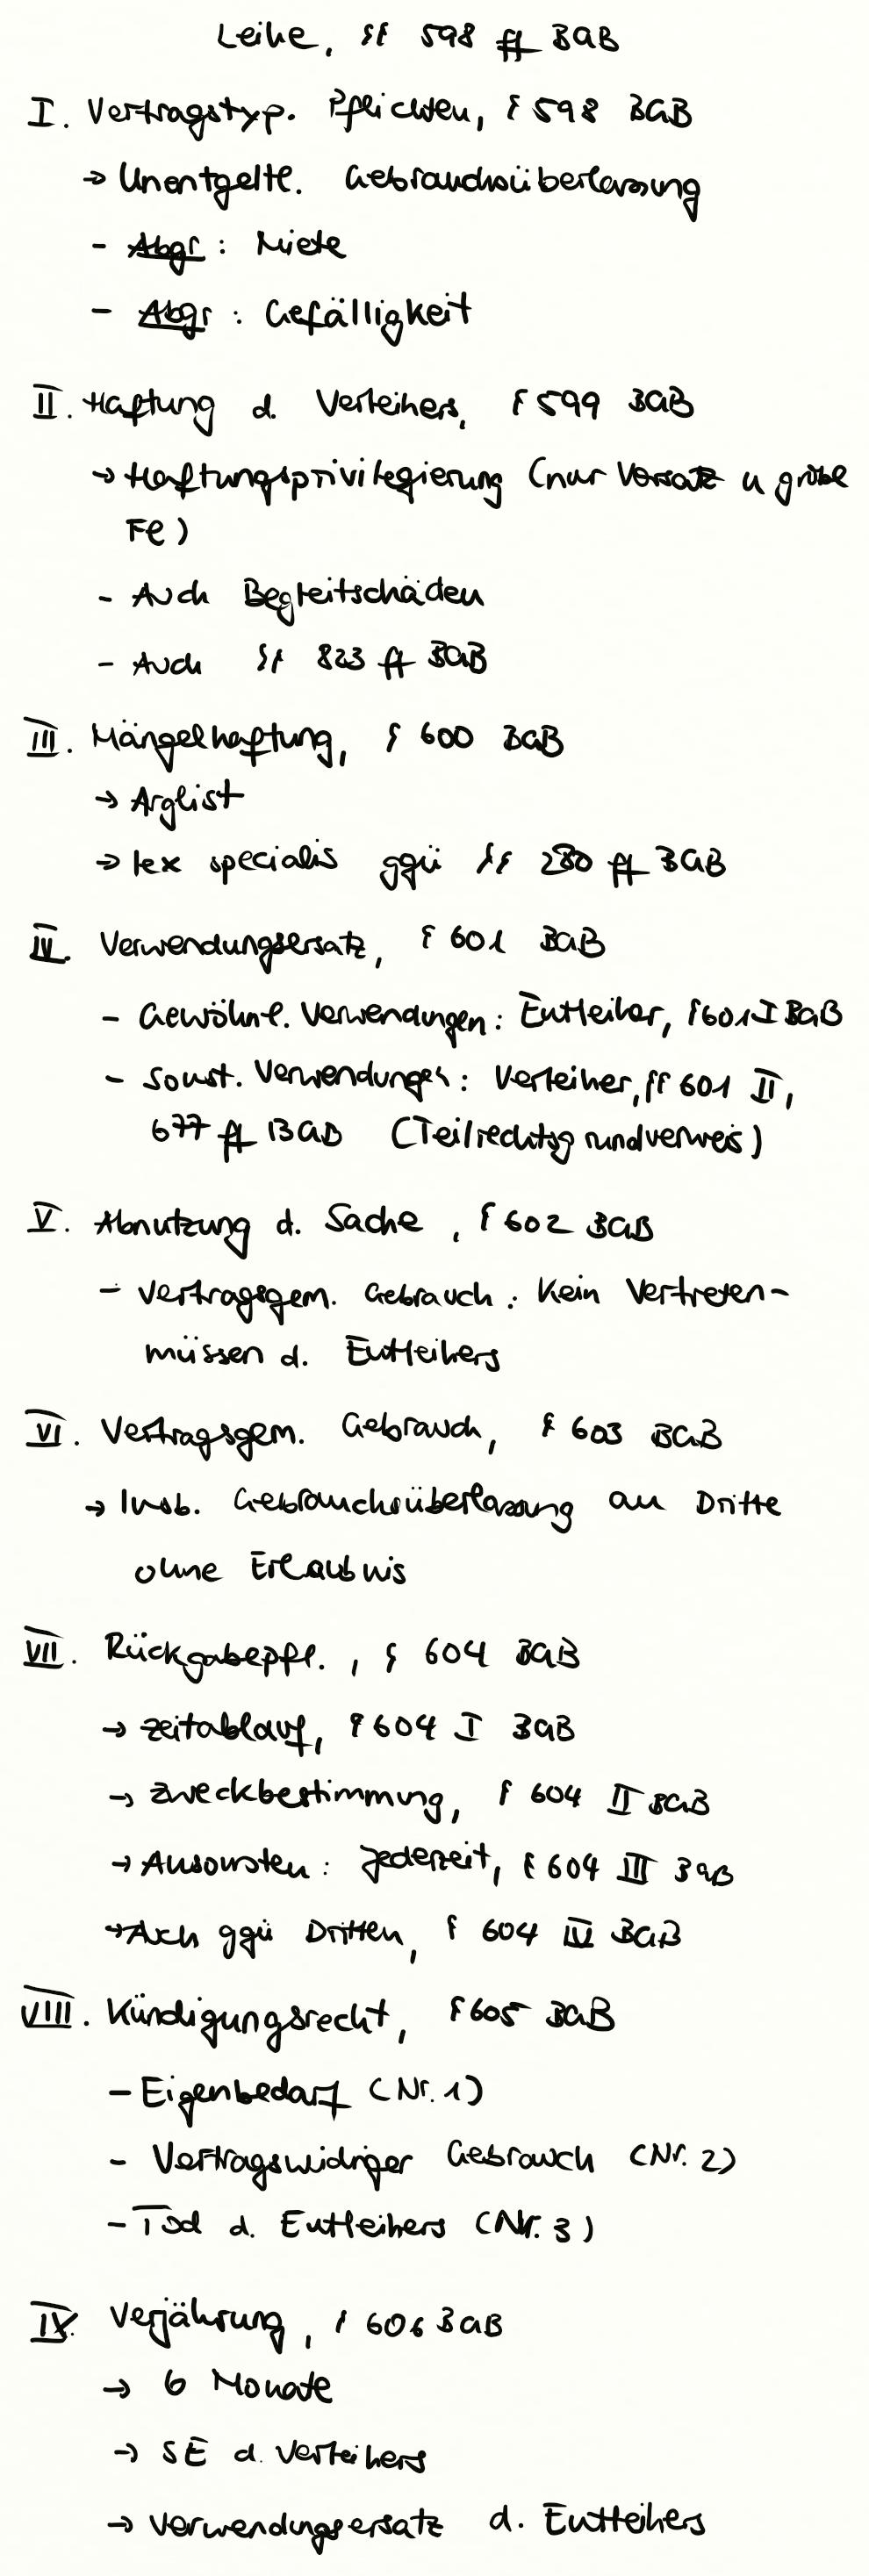 Leihe, §§ 598 ff BGB
I. Vertragstyp. Pflichten, § 598 BGB
→ Unentgeltl. Gebrauchsüberlassung
- Abgr: Miete
- Abgr: Gefälligkeit
II. Haftung d. Verleihers, § 599 BGB
→ Haftungsprivilegierung (nur Vorsatz u grobe
Fe)
- Auch Begleitschäden
- Auch §§ 823 ff BGB
III. Mängelhaftung, § 600 BGB
→ Arglist
→ lex specialis ggü §§ 280 ff BGB
IV. Verwendungsersatz, § 601 BGB
- Gewöhnl. Verwendungen: Entleiher, § 601 I BGB
- Sonst. Verwendungen: Verleiher, §§ 601 II,
677 ff BGB (Teilrechtsgrundverweis)
V. Abnutzung d. Sache, § 602 BGB
- Vertragsgem. Gebrauch: Kein Vertreten-
müssen d. Entleihers
VI. Vertragsgem. Gebrauch, § 603 BGB
→ Insb. Gebrauchsüberlassung an Dritte
ohne Erlaubnis
VII. Rückgabepfl., § 604 BGB
→ Zeitablauf, § 604 I BGB
→ Zweckbestimmung, § 604 II BGB
→ Ansonsten: Jederzeit, § 604 III BGB
→ Auch ggü Dritten, § 604 IV BGB
VIII. Kündigungsrecht, § 605 BGB
- Eigenbedarf (Nr. 1)
- Vertragswidriger Gebrauch (Nr. 2)
- Tod d. Entleihers (Nr. 3)
IX. Verjährung, § 606 BGB
→ 6 Monate
→ SE d. Verleihers
→ Verwendungsersatz d. Entleihers